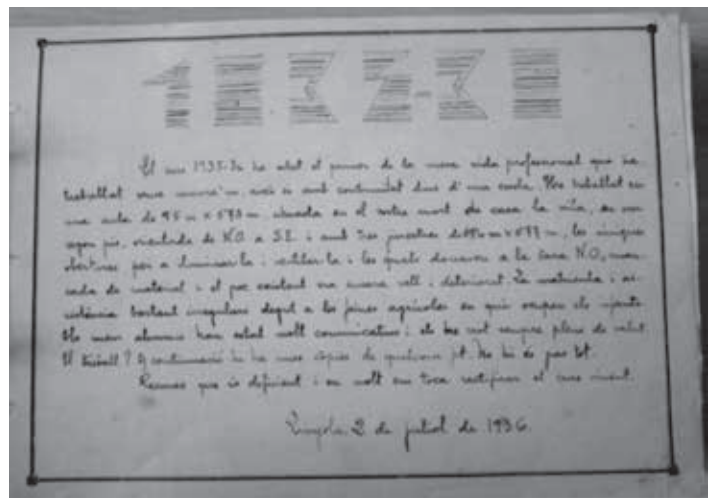 El curs 1935-36 ha estat el primer de la meva vida professional que he
treballat sense moure'm, això és amb continuïtat dins d'una escola. Hem treballat en
una aula de m x m situada en el sostre mort de casa la vila, en un
segon pis, orientada de N.O. a S.E. i amb tres finestres de m x m, les úniques
obertures per a iluminar-la i ventilar-la i les quals donaven a la cara N.O, man-
cada de material i el poc existent era massa vell i deteriorat. La matrícula i as-
sistència bastant irregulars degut a les feines agrícoles en què ocupen els infants.
Els meus alumnes han estat molt comunicatius i els he vist sempre plens de salut.
El treball? A continuació hi ha unes còpies de qualsevol fet. No hi és pas tot.
Reconec que és deficient i en molt em toca rectificar el curs vinent.
2 de juliol de 1936.